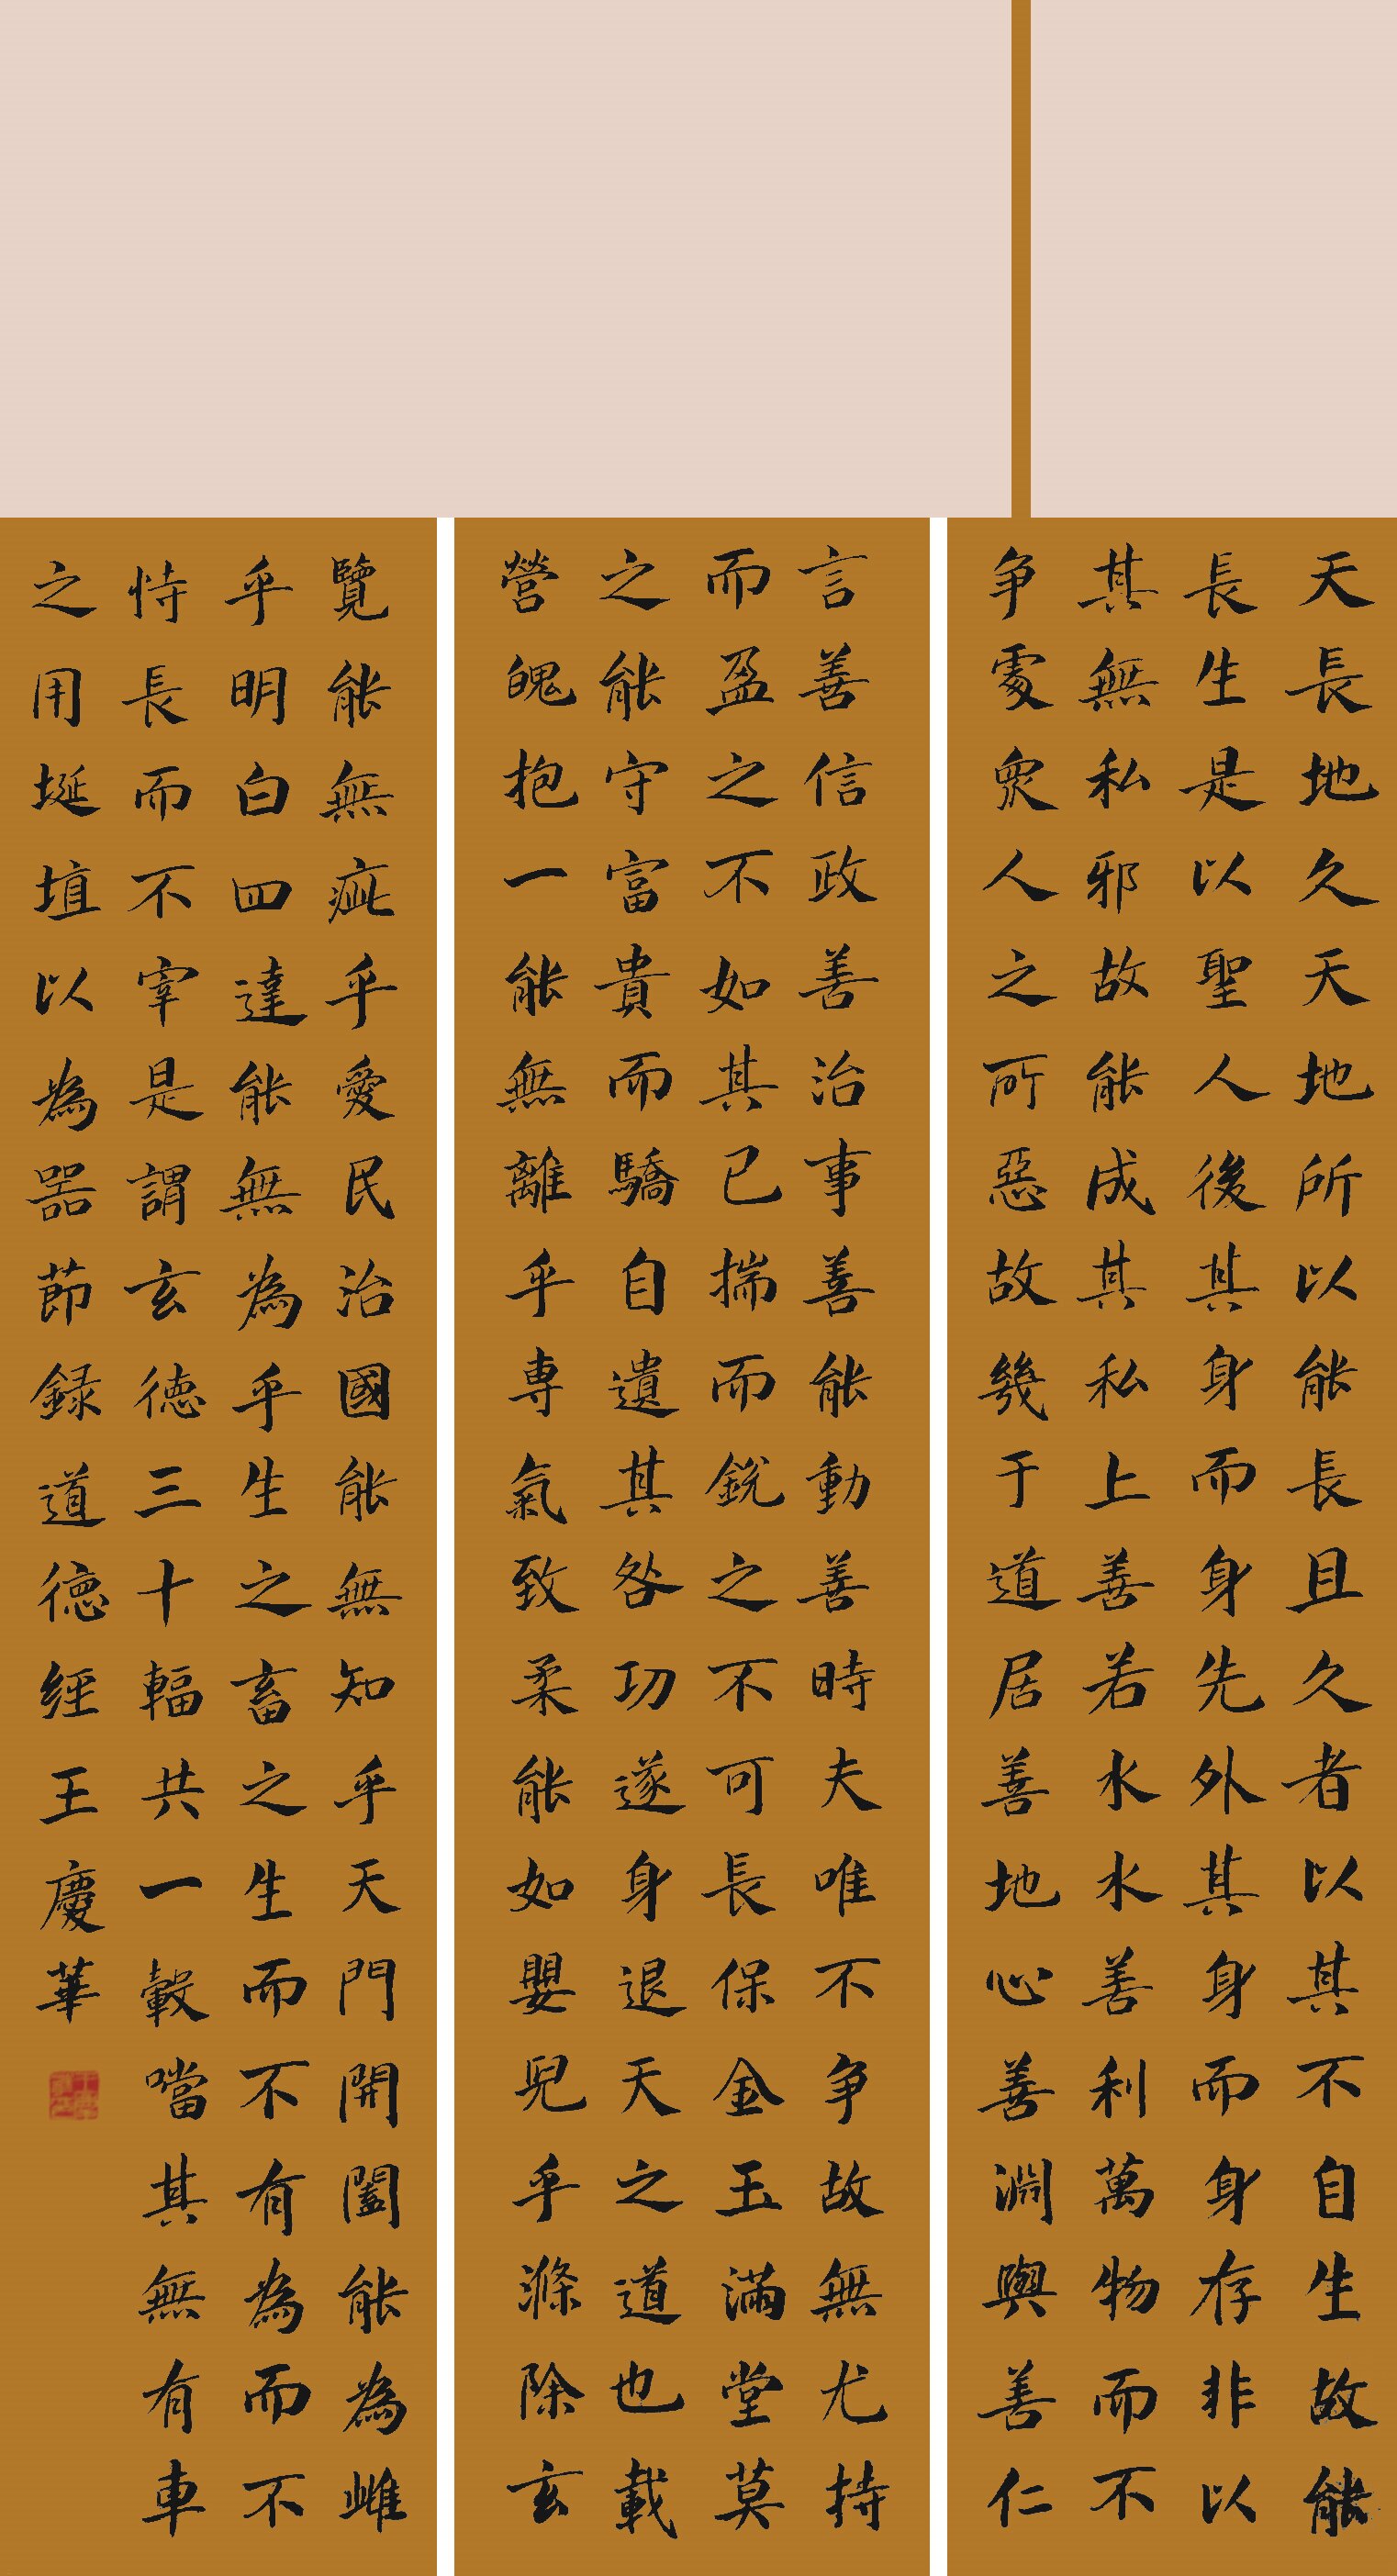 天長地久天地所以能長且久者以其不自生故能
長生是以聖人後其身而身先外其身而身存非以
其無私邪故能成其私上善若水水善利萬物而不
争處衆人之所惡故幾于道居善地心善淵與善仁
言善信政善治事善能動善時夫唯不争故無尤持
而盈之不如其已揣而銳之不可長保金玉滿堂莫
之能守富貴而驕自遺其咎功遂身退天之道也載
營魄抱一能無離乎専氣致柔能如嬰兒乎滌除玄
覽能無疵乎愛民治國能無知乎天門開闔能為雌
乎明白四達能無為乎生之畜之生而不有為而不
恃長而不宰是謂玄徳三十輻共一轂噹其無有車
之用埏埴以為器節録道德經王慶華